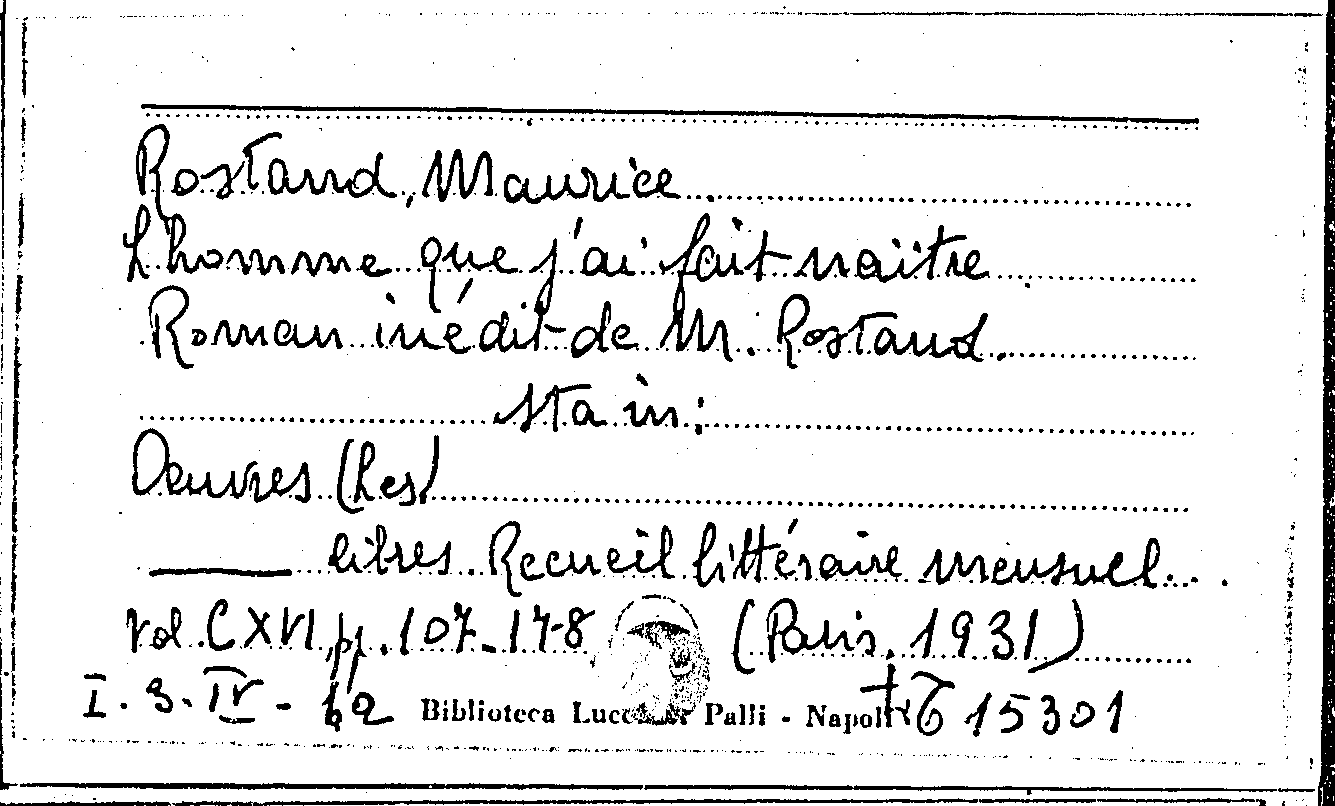 Rostand, Maurice
L'homme que j'ai fait naître
Roman inédit de M. Rostand.
sta in:
Oeuvres (Les)
libres. Recueil littéraire mensuel...
Vol. CXVI, pp. 107-148 (Paris, 1931)
I. 3. IV - 62 Biblioteca Lucchesi Palli - Napoli 15301